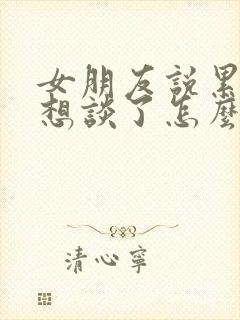 女朋友說累
想談了怎麼
清心寧